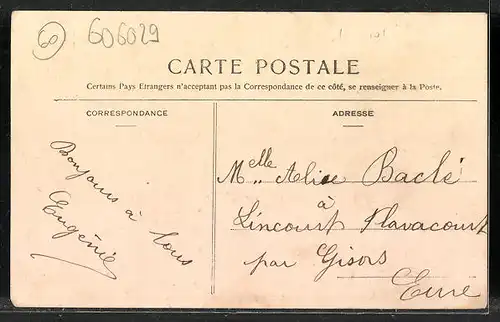 60
606029
CARTE POSTALE
Certains Pays Etrangers n'acceptant pas la Correspondance de ce côté, se renseigner à la Poste.
CORRESPONDANCE
Bonjours à tous
Eugénie
ADRESSE
Melle Alise Baclé
à
Lincourt Flavacourt
par Gisors
Eure